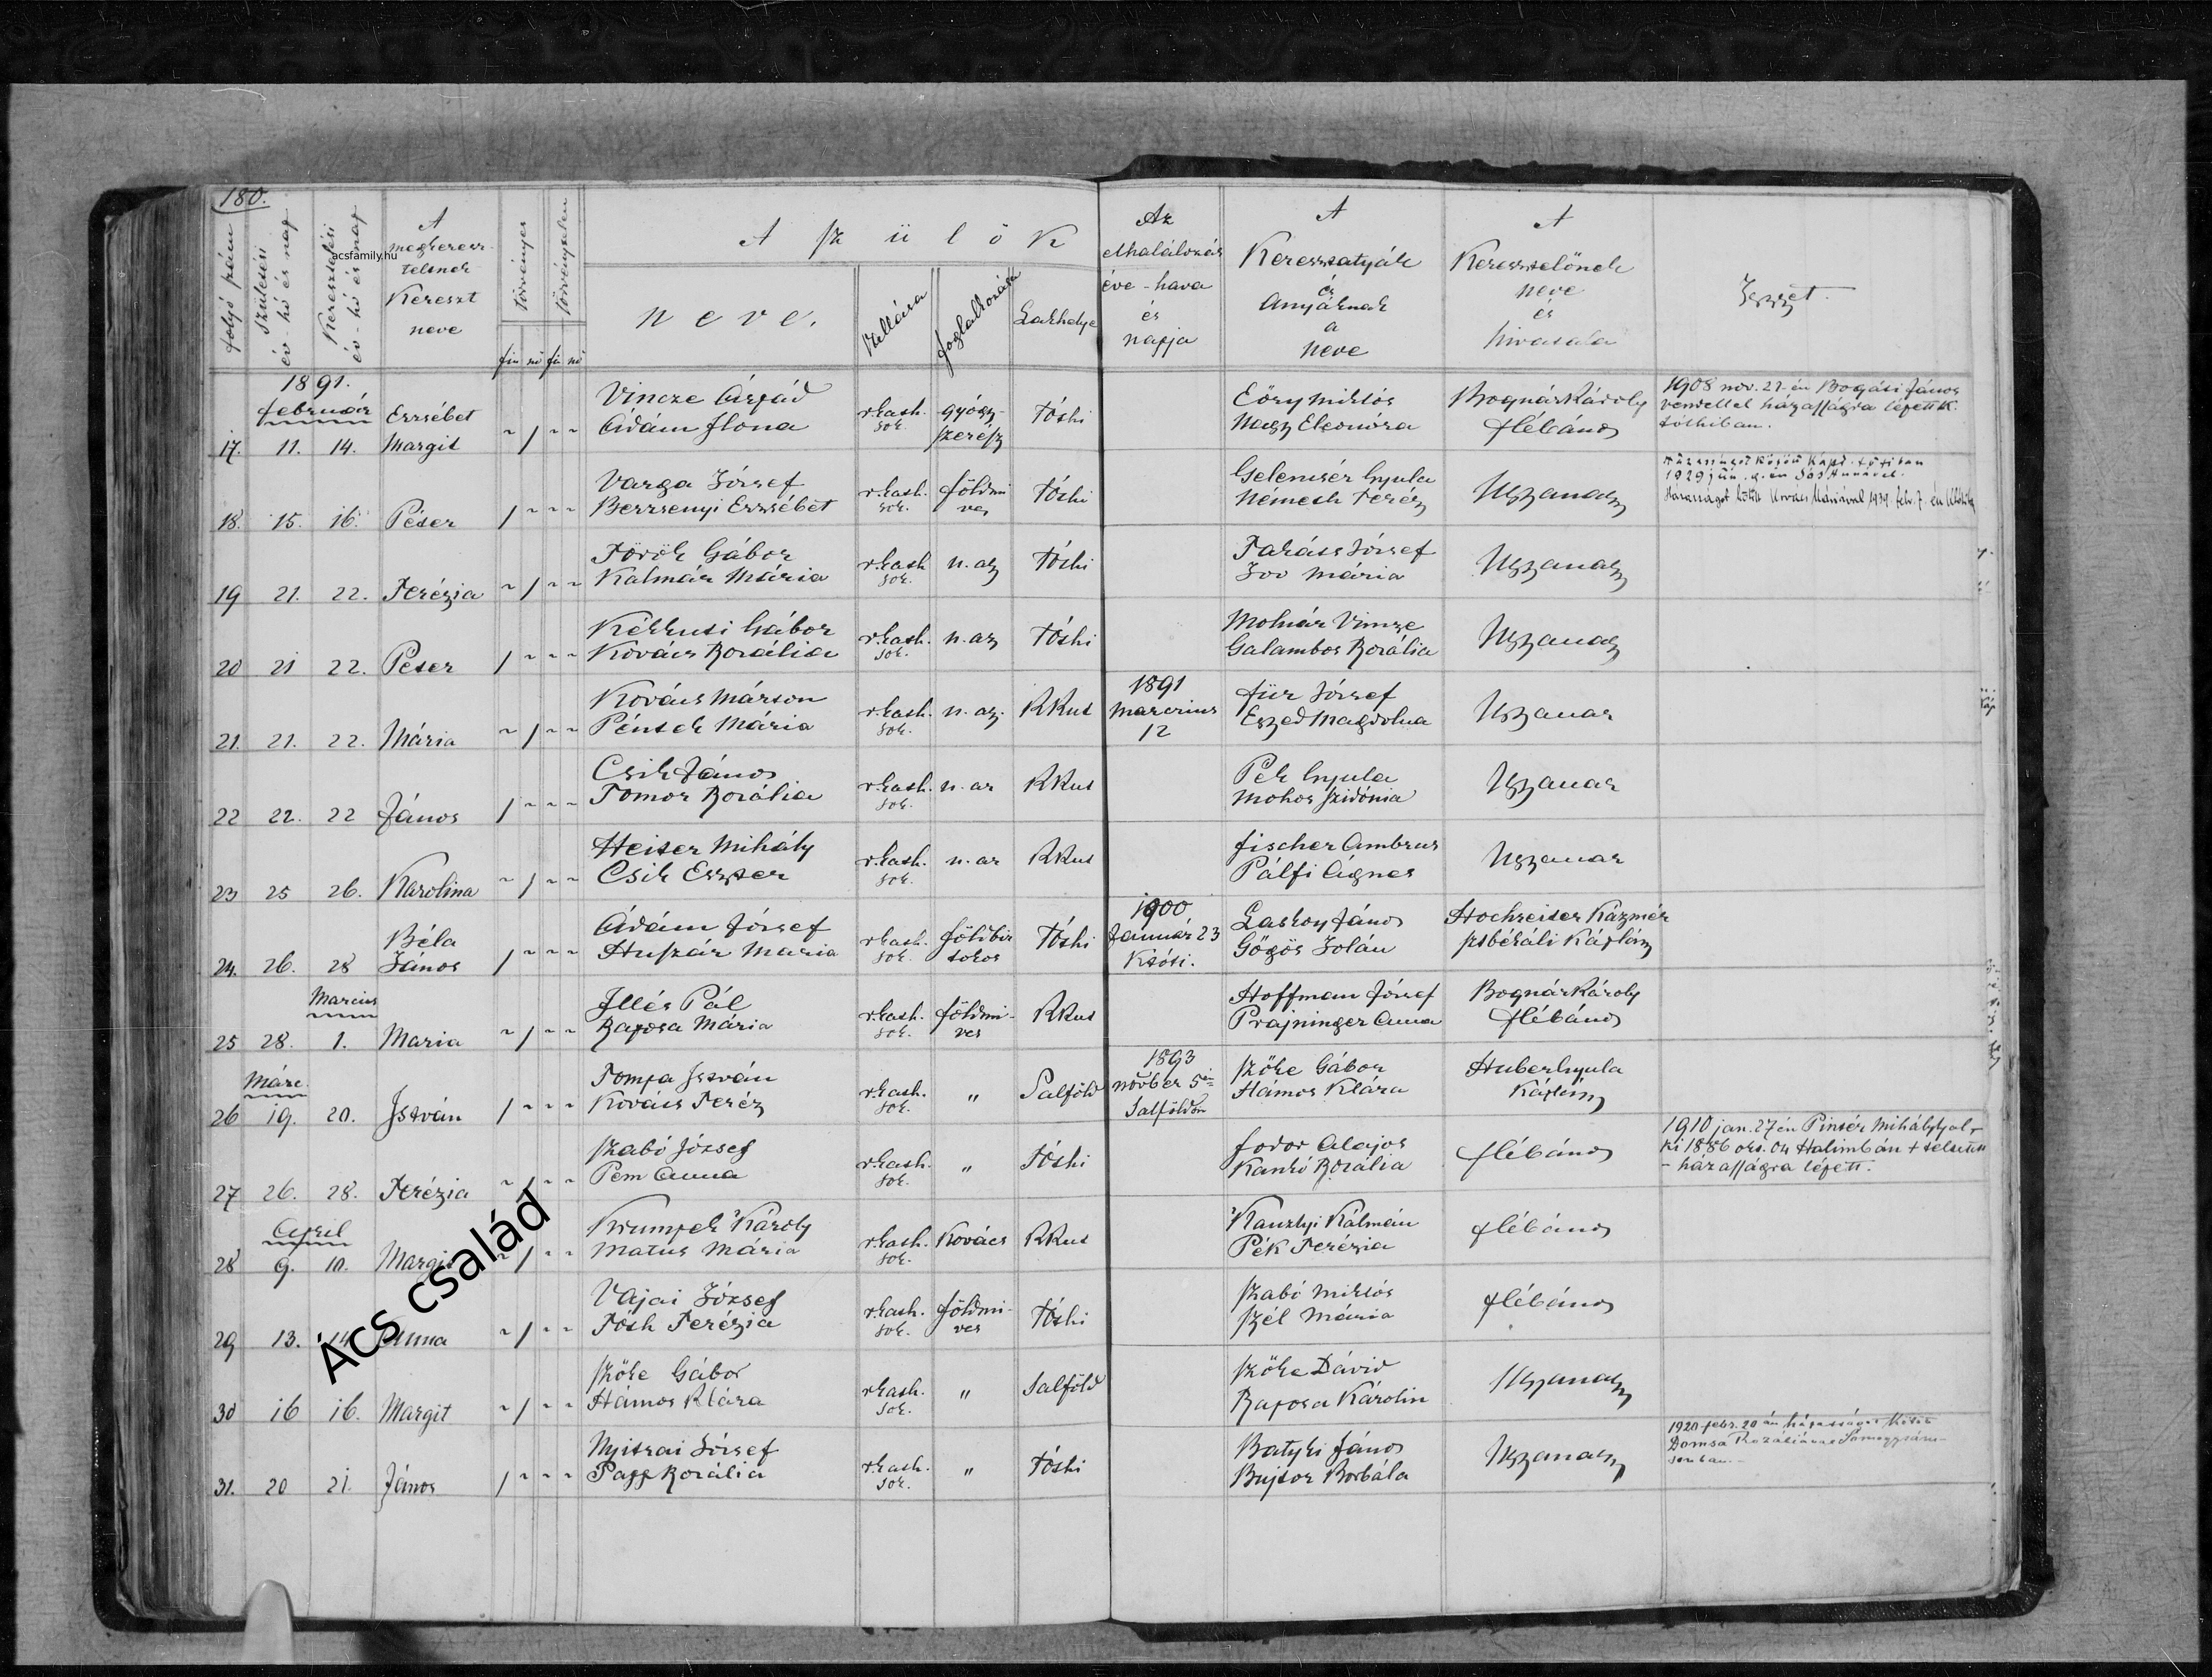 180.
folyó szám
Születési
év - hó és nap
Keresztelési
év - hó és nap
acsfamily.hu
A
megkeresz-
teltnek
Kereszt
neve
törvényes
törvénytelen
fin nő fin nő
A szülők
neve.
Vallása
foglalkozása
Lakhelye
Az
elhalálozás
éve - hava
és
napja
A
Keresztatyák
és
Anyáknak
a
neve
A
Keresztelőnek
neve
és
hivatala
Jegyzet.
1891.
Február
17. 11. 14. Erzsébet
Margit
Vincze Árpád
Ádám Ilona
r.kath.
sok.
gyógy-
szerész
Tóthi
Eöry Miklós
Nagy Eleonóra
Bognár Károly
plébános
1908 nov. 21-én Bogási János
vendellel házasságra lépett K.
tóthiban.
18. 15. 16. Péter
Varga József
Berzsenyi Erzsébet
r.kath.
sok.
földmi
ves
Tóthi
Gelencsér Gyula
Németh Teréz
Ugyanaz
19 21. 22. Terézia
Török Gábor
Kalmár Mária
r.kath
sok.
n. az
Tóthi
Takáts József
Joo Mária
Ugyanaz
20 21 22. Péter
Kékkuti Gábor
Kovács Rozália
r.kath.
sok.
n. az
Tóthi
Molnár Vincze
Galambos Rozália
Ugyanaz
21. 21. 22. Mária
Kovács Márton
Péntek Mária
r.kath.
sok.
n. az.
KKut
1891
Marczius
12
Für József
Eszed Magdolna
Ugyanaz
22 22. 22 János
Csik János
Tomor Rozália
r.kath.
sok.
n. az
KKut
Pék Gyula
Mohos Szidónia
Ugyanaz
23 25 26. Karolina
Heiter Mihály
Csik Eszter
r.kath.
sok.
n. az
KKut
Fischer Ambrus
Pálfi Ágnes
Ugyanaz
24. 26. 28 Béla
János
Ádám József
Huszár Maria
r.kath.
sok.
földbir
tokos
Tóthi
1900
Január 23
Któti.
Laskoy János
Gőgös Zolán
Hochreiter Kázmér
sztbékáli Káplán
Marcius
25 28. 1. Maria
Illés Pál
Raposa Mária
r.kath.
sok.
földmi-
ves
KKut
Hoffman József
Prajninger Anna
Bognár Károly
plébános
Márc.
26 19. 20. István
Tompa István
Kovács Teréz
r.kath.
sok.
"
Salföld
1893
növber 5én
Salföldön
Szőke Gábor
Hámos Klára
Huber Gyula
Káplán
27 26. 28. Terézia
Szabó József
Pem Anna
r.kath.
sok.
"
Tóthi
Fodor Alajos
Kankó Rozália
plébános
1910 jan. 27én Pintér Mihálylyal,
ki 1886 okt. 04 Halimbán + született
- házasságra lépett.
April
28 9. 10. Margit
Krumpek Károly
Matus Mária
r.kath.
sok.
Kovács
KKut
Kanzlyi Kálmán
Pék Terézia
plébános
29 13. 14 Anna
Vajai József
Tóth Terézia
r.kath.
sok.
földmi-
ves
Tóthi
Szabó Miklós
Szél Mária
plébános
30 16 16. Margit
Szőke Gábor
Hámos Klára
r.kath.
sok.
"
Salföld
Szőke Dávid
Raposa Károlin
Ugyanaz
31. 20 21. János
Nyitrai József
Papp Rozália
r.kath.
sok.
"
Tóthi
Batyki János
Bujtor Borbála
Ugyanaz
1920 febr. 20 án házasságot kötött
Domsa Rozáliával
Ács család